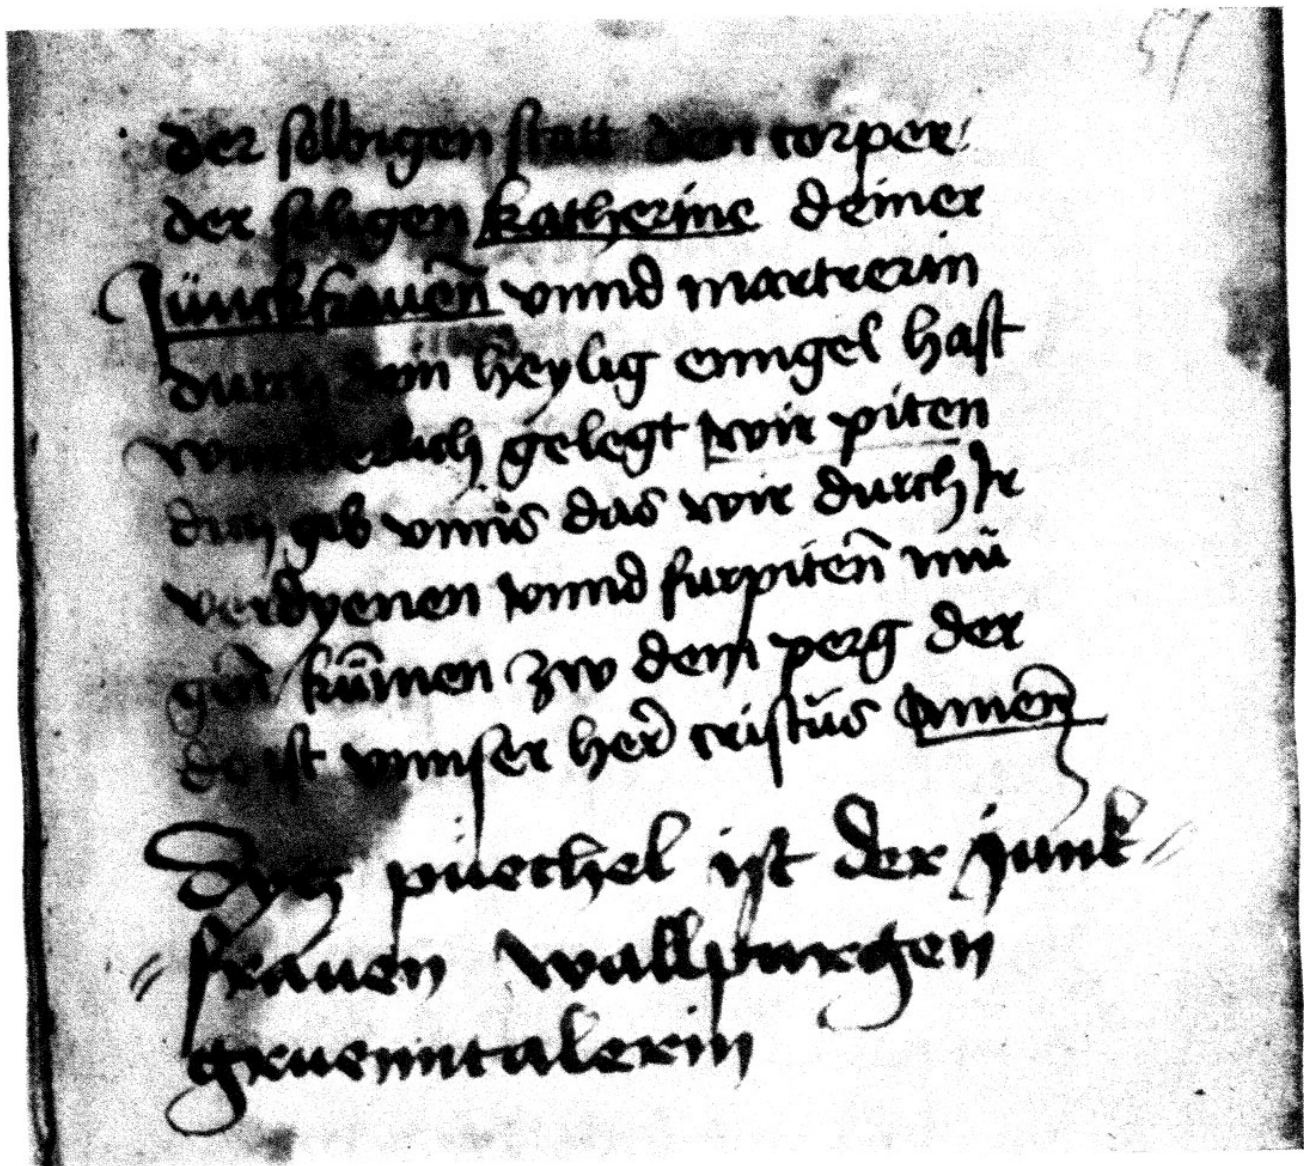 57
der selbigen statt den corper
der seligen katherine deiner
Jünckfrauen̄ vnnd martrerin
durch dein heylig enngel hast
wunderlich gelegt wir piten
dich geb vnns das wir durch Ir
verdyenen vnnd furpiten̄ mü
gen̄ kūmen zw dem perg der
do ist vnnser her̄ cristus Amen̄
Dyez püechel ist der junk=
=frauen wallpurgen
gruenntalerin